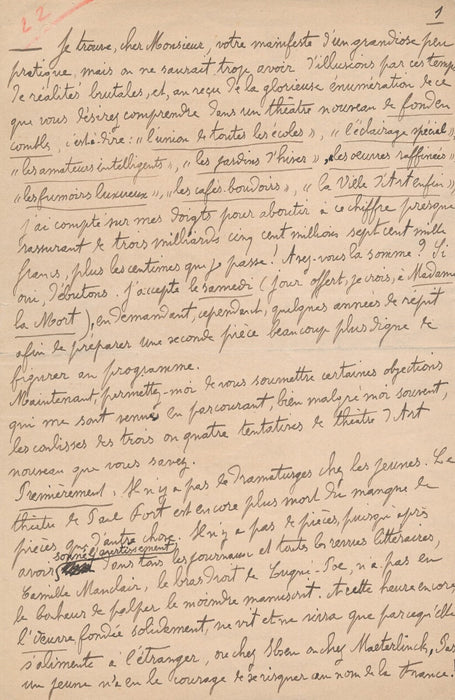 22
1
— Je trouve, cher Monsieur, votre manifeste d'un grandiose peu
pratique, mais on ne saurait trop avoir d'illusions par ces temps
de réalités brutales, et, au reçu de la glorieuse enumération de ce
que vous désirez comprendre dans un théâtre nouveau de fond en
comble, c'est à dire : "l'union de toutes les écoles", "l'éclairage spécial",
"les amateurs intelligents", "les jardins d'hiver", "les œuvres raffinées"
"les fumoirs luxueux", "les cafés-boudoirs", "la Ville d'Art enfin",
j'ai compté sur mes doigts pour aboutir à ce chiffre presque
rassurant de trois milliards cinq cent millions sept cent mille
francs, plus les centimes que je passe ! Avez-vous la somme ? Si
oui, débutons. J'accepte le samedi (jour offert, je crois, à Madame
la Mort), en demandant, cependant, quelques années de répit
afin de préparer une seconde pièce beaucoup plus digne de
figurer au programme.
Maintenant, permettez-moi de vous soumettre certaines objections
qui me sont venues en parcourant, bien malgré moi souvent,
les coulisses des trois ou quatre tentatives de théâtre d'Art
nouveau que vous savez.
Premièrement : Il n'y a pas de dramaturges chez les jeunes. Le
théâtre de Paul Fort est encore plus mort du manque de
pièces que d'autre chose. Il n'y a pas de pièces, puisqu'après
avoir sonné l'avertissement dans tous les journaux et toutes les revues littéraires,
Camille Mauclair, le bras droit de Lugné-Poe, n'a pas eu
le bonheur de palper le moindre manuscrit. A cette heure encore
l'œuvre fondée solidement, ne vit et ne vivra que parcequ'elle
s'alimente à l'étranger, ou chez Ibsen ou chez Maeterlinck. Pas
un jeune n'a eu le courage de se risquer au nom de la France !